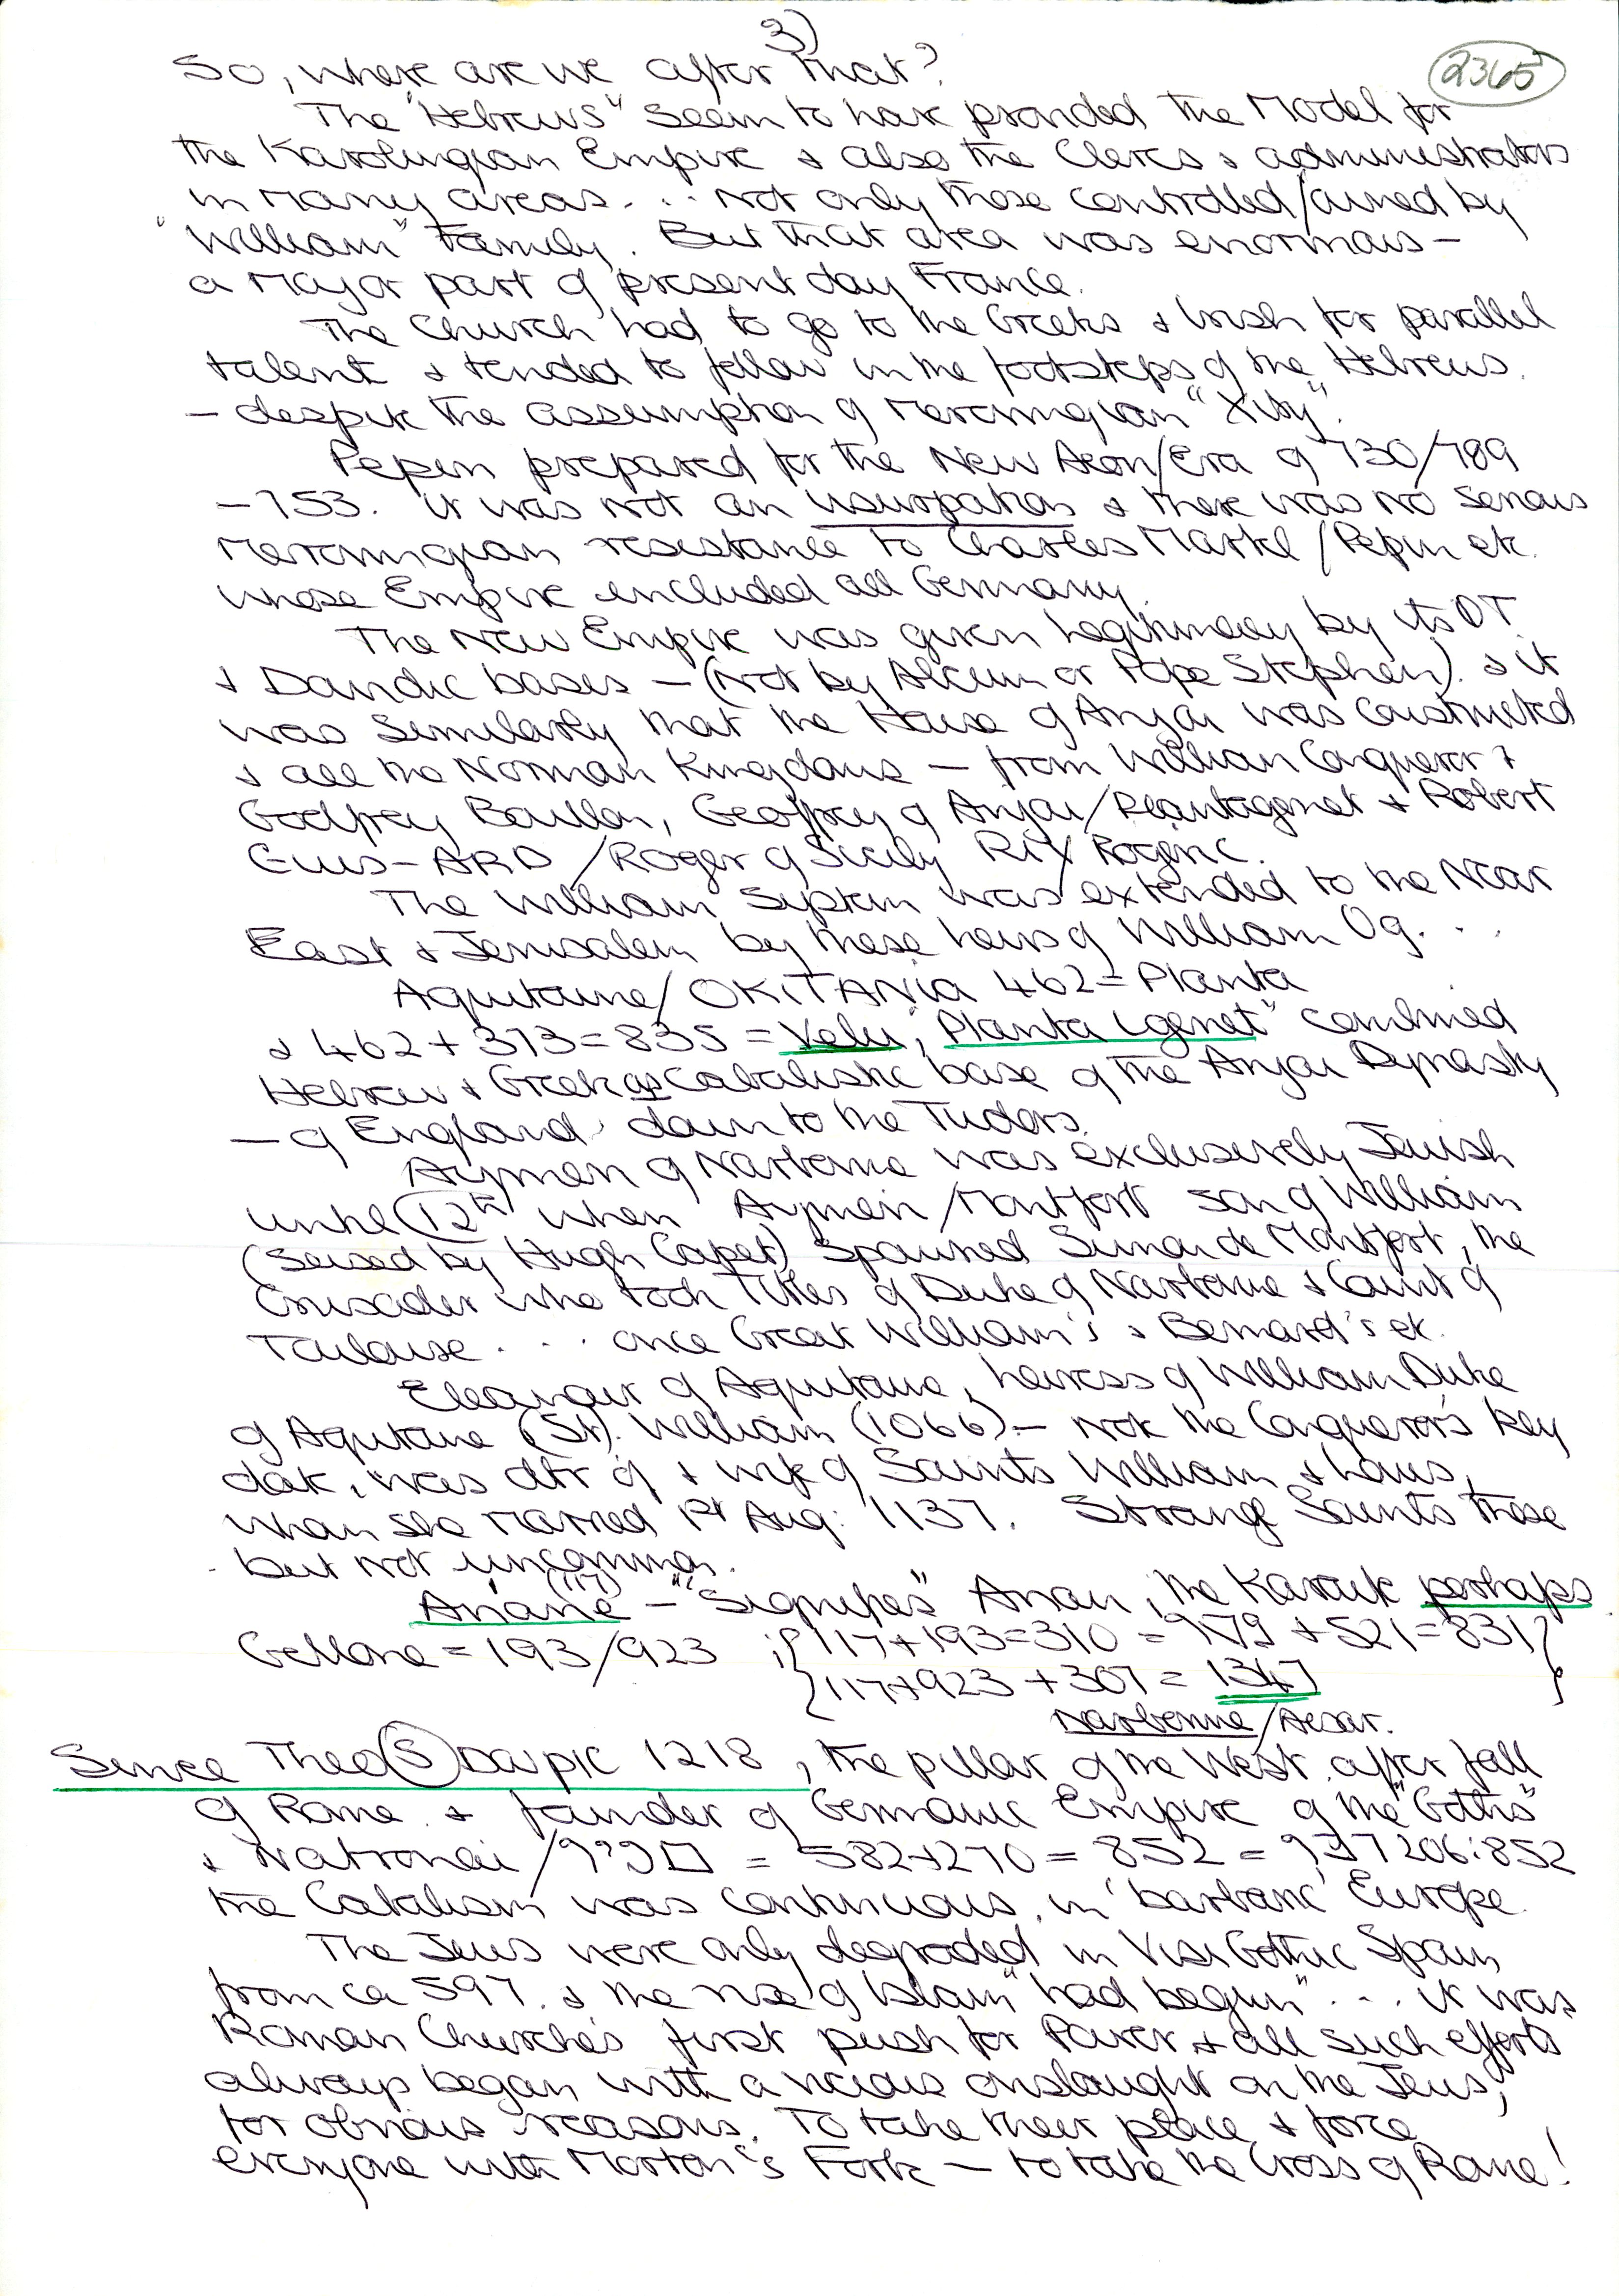 3)
2365
So, where are we after that?
The "Hebrews" seem to have provided the Model for
the Karolingian Empire & also the Clercs & administrators
in Many areas. .. Not only those controlled/owned by
"William" Family. But that area was enormous –
a Major part of present day France.
The Church had to go to the Greeks & Irish for parallel
talent & tended to follow in the footsteps of the Hebrews.
– despite the assumption of Merovingian "Xity".
Pepin prepared for the New Aeon/Era of 730/789
– 753. It was not an usurpation & there was no serious
Merovingian resistance to Charles Martel/Pepin etc.
whose Empire included all Germany.
The New Empire was given legitimacy by its OT
& Davidic bases – (Not by Alcuin or Pope Stephen). & it
was similarly that the House of Anjou was constructed
& all the Norman Kingdoms – from William Conqueror &
Godfrey Bouillon, Geoffrey of Anjou/Plantagenet & Robert
Guis-ARD/Roger of Sicily Rix Rogeric.
The William System was extended to the Near
East & Jerusalem by these heirs of William Og. . .
Aquitaine/OKITANIA 462 = Planta
& 462 + 373 = 835 = Velu, "Planta (genet" combined
Hebrew & Greek as Cabalistic base of the Anjou Dynasty
– of England down to the Tudors.
Aymeri of Narbonne was exclusively Jewish
until 12th when Aymeri/Montfort son of William
(seised by Hugh Capet) spawned Simon de Montfort, the
Crusader who took Titles of Duke of Narbonne & Count of
Toulouse. . . once Great William's & Bernard's etc.
Eleanour of Aquitaine, heiress of William Duke
of Aquitaine (St). William (1066) – not the Conqueror's key
date, was dtr of & wife of Saints William & Louis,
whom she married 1st Aug: 1137. Strange Saints these
but not uncommon.
(117)
Aniane – "Signifies" Anan, the Karaite perhaps
Gellone = 193/923 ; {117+193=310 = 979 + 521 = 831}
{117+923 + 307 = 1347
Narbonne/Aesar.
Since Theo(S) DOUPIC 1218, the pillar of the West after fall
of Rome. & founder of Germanic Empire of the "Goths"
& Natronai / = 582+270 = 852 = 206:852
the Cabalism was continuous in 'barbaric' Europe.
The Jews were only degraded in VisiGothic Spain
from ca 597. & the rise of Islam "had begun". . . it was
Roman Churche's first push for Power & all such efforts
always began with a vicious onslaught on the Jews,
for obvious reasons. To take their place & force
everyone with Morton's Fork – to take the Cross of Rome!